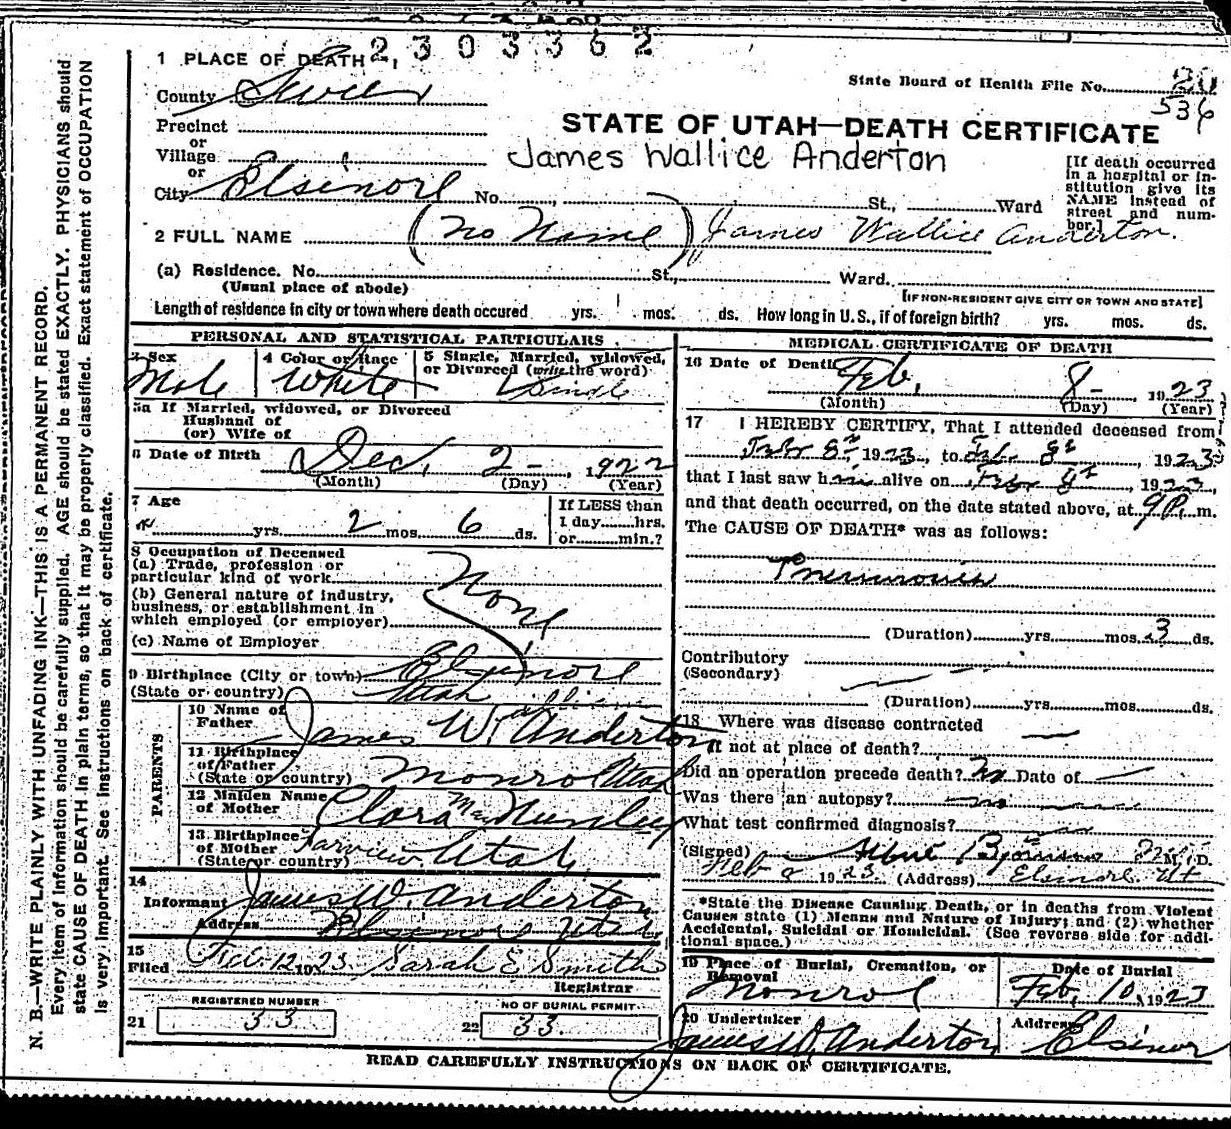 2303362
1 PLACE OF DEATH
State Board of Health File No. 20
536
County Sevier
STATE OF UTAH—DEATH CERTIFICATE
Precinct
or
Village
James Wallice Anderton
or
City Elsinore No. St., Ward
[If death occurred
in a hospital or in-
stitution give its
NAME instead of
street and num-
ber.]
2 FULL NAME (No Name) James Wallice Anderton.
(a) Residence. No. St., Ward.
(Usual place of abode)
[IF NON-RESIDENT GIVE CITY OR TOWN AND STATE]
Length of residence in city or town where death occured yrs. mos. ds. How long in U.S., if of foreign birth? yrs. mos. ds.
PERSONAL AND STATISTICAL PARTICULARS
3 Sex 4 Color or Race 5 Single, Married, widowed,
or Divorced (write the word)
Male White Single
5a If Married, widowed, or Divorced
Husband of
(or) Wife of
6 Date of Birth Dec. 2- 1922
(Month) (Day) (Year)
7 Age
yrs. 2 mos. 6 ds.
If LESS than
1 day hrs.
or min.?
8 Occupation of Deceased
(a) Trade, profession or
particular kind of work
None
(b) General nature of industry,
business, or establishment in
which employed (or employer)
(c) Name of Employer
9 Birthplace (City or town) Elsinore
(State or country) Utah
PARENTS
10 Name of
Father James W. Anderton
11 Birthplace
of Father
(State or country) Monroe Utah
12 Maiden Name
of Mother Clara Mae Nunley
13 Birthplace
of Mother
(State or country) Farview Utah,
14
Informant James W. Anderton
Address Elsinore Utah
15
Filed Feb. 12 1923. Sarah E Smith
Registrar
REGISTERED NUMBER
21 33
NO OF BURIAL PERMIT
22 33.
MEDICAL CERTIFICATE OF DEATH
16 Date of Death Feb, 8- 1923
(Month) (Day) (Year)
17 I HEREBY CERTIFY, That I attended deceased from
1923, to 1923
that I last saw him alive on 1923,
and that death occurred, on the date stated above, at 9 P. m.
The CAUSE OF DEATH* was as follows:
Pneumonia
(Duration) yrs. mos. 3 ds.
Contributory
(Secondary)
(Duration) yrs. mos. ds.
18 Where was disease contracted
If not at place of death?
Did an operation precede death? No Date of
Was there an autopsy? no
What test confirmed diagnosis?
(Signed) M. D.
1923 (Address) Elsinore Ut
*State the Disease Causing Death, or in deaths from Violent
Causes state (1) Means and Nature of Injury; and (2) whether
Accidental, Suicidal or Homicidal. (See reverse side for addi-
tional space.)
19 Place of Burial, Cremation, or
Removal
Monroe
Date of Burial
Feb, 10, 1923
20 Undertaker
James W. Anderton
Address
Elsinor
READ CAREFULLY INSTRUCTIONS ON BACK OF CERTIFICATE.
N. B.—WRITE PLAINLY WITH UNFADING INK—THIS IS A PERMANENT RECORD.
Every item of information should be carefully supplied. AGE should be stated EXACTLY. PHYSICIANS should
state CAUSE OF DEATH in plain terms, so that it may be properly classified. Exact statement of OCCUPATION
is very important. See instructions on back of certificate.